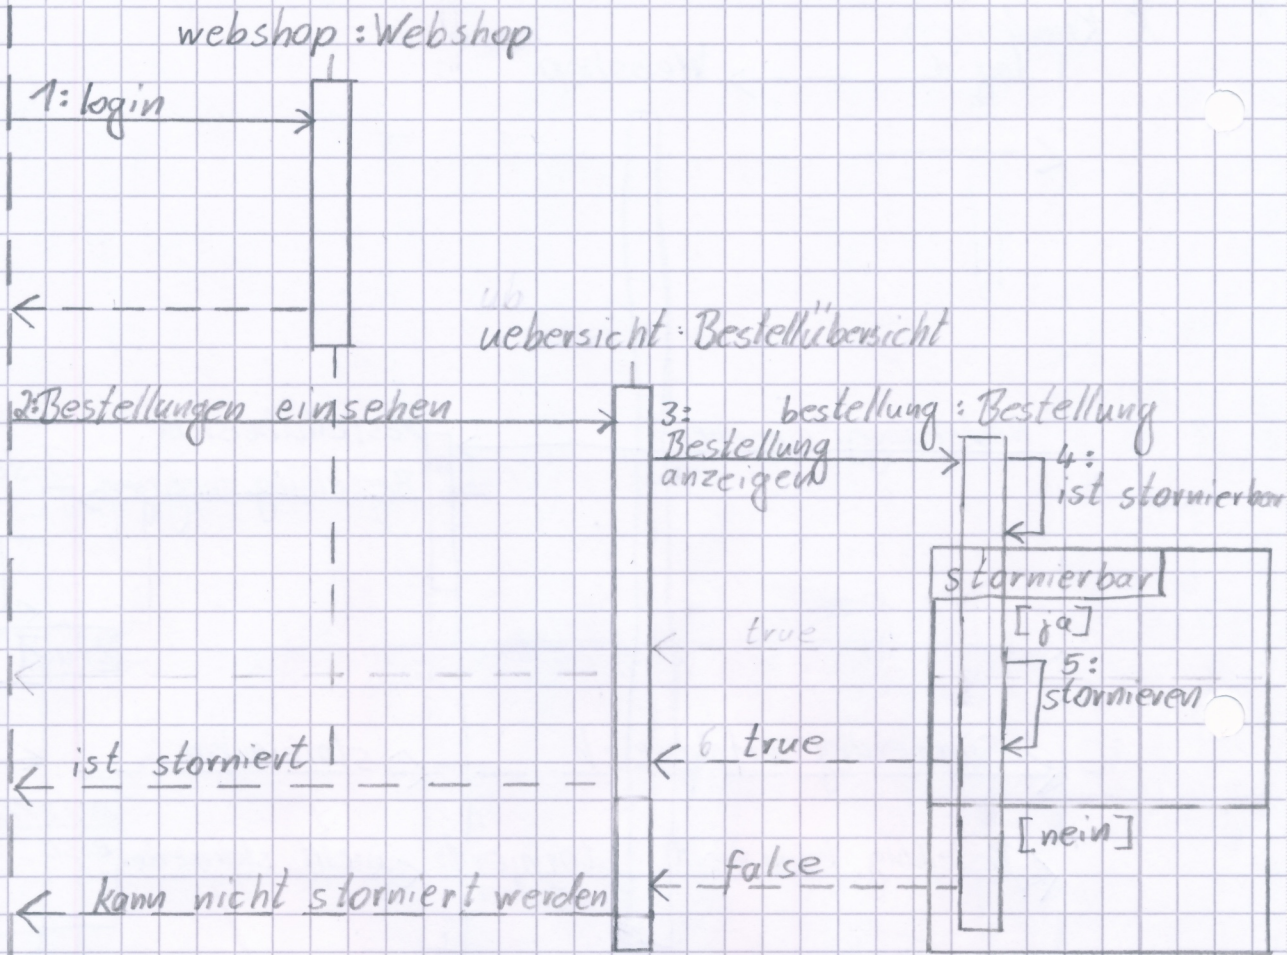 webshop : Webshop
1: login
üb
uebersicht : Bestellübersicht
2: Bestellungen einsehen
3:
Bestellung
anzeigen
bestellung : Bestellung
4:
ist stornierbar
stornierbar
[ja]
true
5:
stornieren
6 true
ist storniert
[nein]
false
kann nicht storniert werden